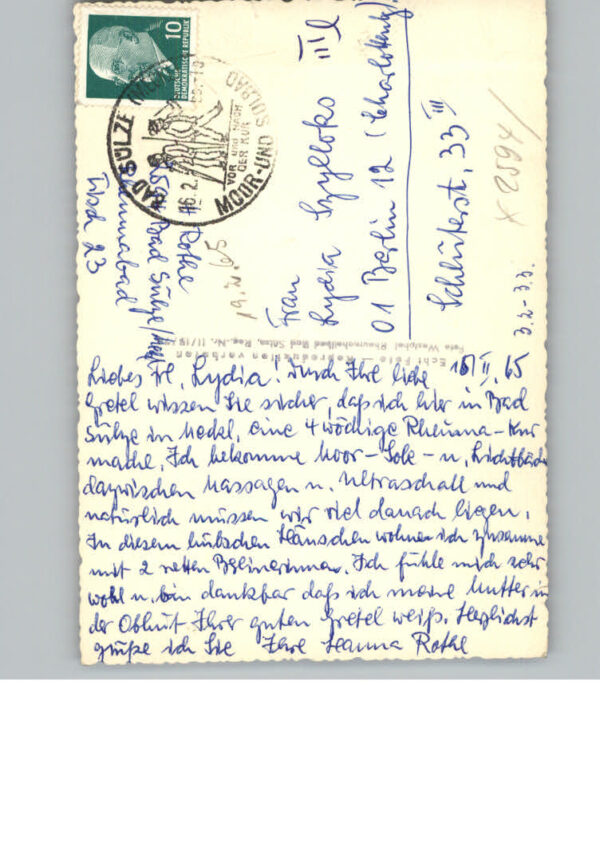 10
DEUTSCHE
DEMOKRATISCHE REPUBLIK
BAD SÜLZE
VOR UND NACH
DER KUR
MOOR-UND SOLBAD
16.2.
Rothe
Bad Sülze/Meckl
23
19.2.65
Frau
Lydia
01 Berlin 12 (Charlottenbg.)
Schlüterstr. 33 III
x 2594/
3.2.-3.3.
Echt Foto — Reproduktion verboten
Foto Westphal Rheumaheilbad Bad Sülze, Reg.-Nr. II/19
16. II. 65
Liebes Frl. Lydia! Durch Ihre liebe
Gretel wissen Sie sicher, daß ich hier in Bad
Sülze in Meckl. eine 4 wöchige Rheuma-Kur
mache. Ich bekomme Moor-Sole- u. Lichtbäder
dazwischen Massagen u. Ultraschall und
natürlich müssen wir viel danach liegen.
In diesem hübschen Häuschen wohne ich zusammen
mit 2 netten Berlinerinnen. Ich fühle mich sehr
wohl u. bin dankbar daß ich meine Mutter in
der Obhut Ihrer guten Gretel weiß. Herzlichst
grüße ich Sie Ihre Hanna Rothe